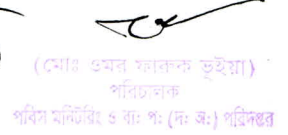 (মোঃ ওমর ফারুক ভূইয়া)
পরিচালক
পবিস মনিটরিং ও ব্যঃ পঃ (দঃ অঃ) পরিদপ্তর